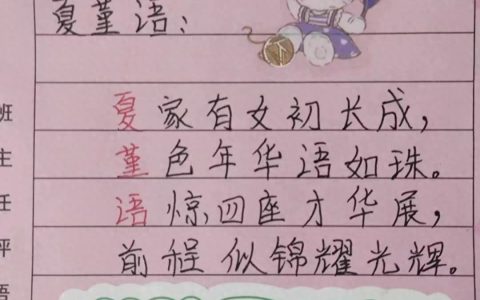 夏堇语:
夏家有女初长成,
堇色年华语如珠。
语惊四座才华展,
前程似锦耀光辉。
班
主
任
评
语